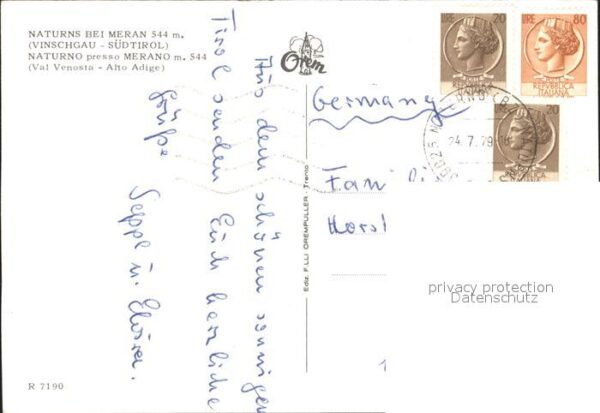 NATURNS BEI MERAN 544 m.
(VINSCHGAU - SÜDTIROL)
NATURNO presso MERANO m. 544
(Val Venosta - Alto Adige)
Orem
LIRE 20
REPVBBLICA
ITALIANA
LIRE 80
REPVBBLICA
ITALIANA
20
24.7.79-18
Aus dem schönen sonnigen
Tirol senden Euch herzliche
Grüße
Seppl u. Elvira.
Germany
Fam
Horst
Ediz. F.LLI OREMPULLER - Trento
privacy protection
Datenschutz
R 7190